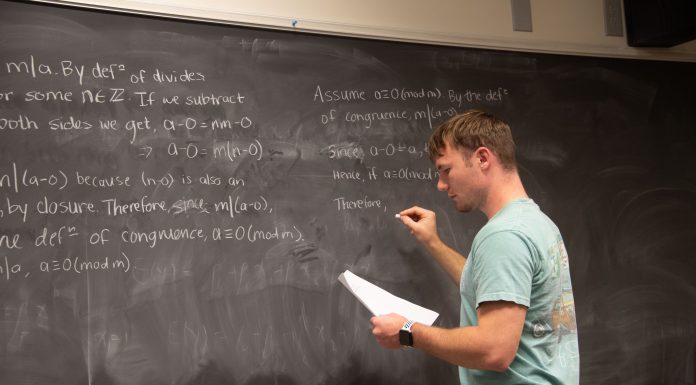 m|a. By defⁿ of divides
for some n∈ℤ. If we subtract
both sides we get, a-0=nm-0
=> a-0=m(n-0)
m|(a-0) because (n-0) is also an
, by closure. Therefore, since m|(a-0),
the defⁿ of congruence, a≡0(mod m).
m|a, a≡0(mod m).
Assume a≡0(mod m). By the defⁿ
of congruence, m|(a-0)
Since a-0=a,
Hence, if a≡0(mod m
Therefore,